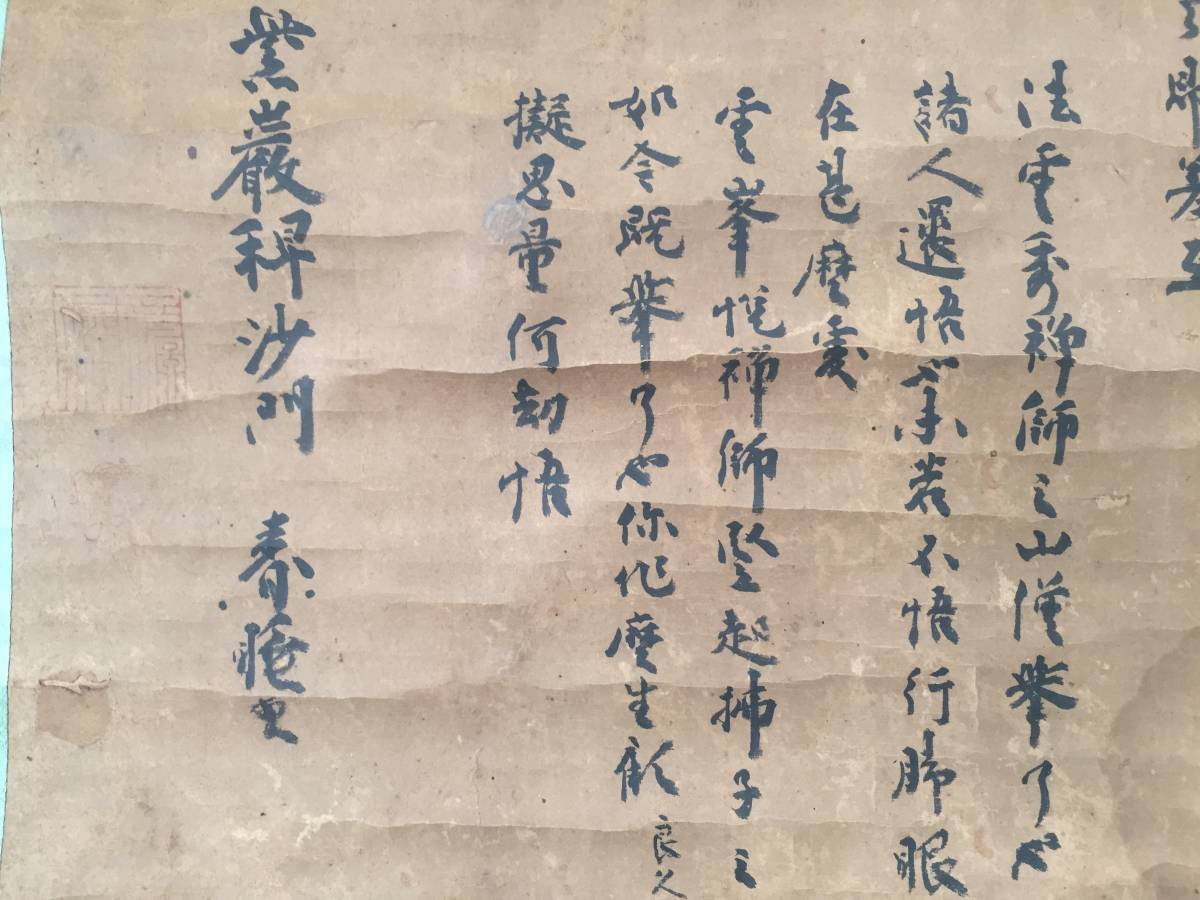 法雲秀禅師云山僧舉了也
諸人還悟也未若不悟行脚眼
在甚麼處
雲峯悦禅師竪起拂子云
如今既舉了也你作麼生顧良久
擬思量何劫悟
紫巖稗沙門 春書